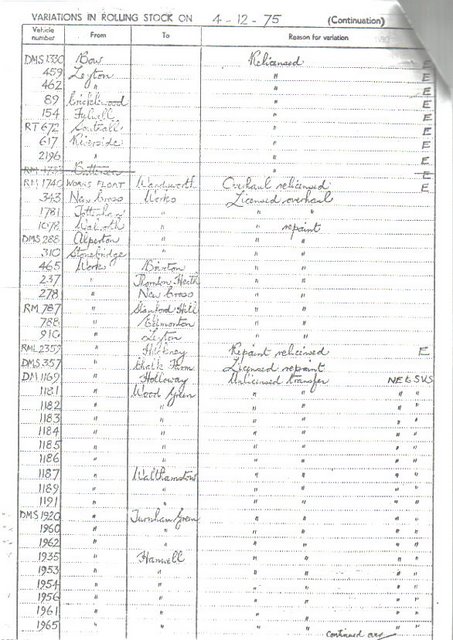 VARIATIONS IN ROLLING STOCK ON 4-12-75 (Continuation)
Vehicle number From To Reason for variation
DMS 1330 Bow Relicensed E
459 Leyton " E
462 " " E
89 Cricklewood " E
154 Fulwell " E
RT 672 Southall " E
617 Riverside " E
2196 " " E
RM 1735 Battersea " E
RM 1740 WORKS FLOAT Wandsworth Overhaul relicensed E
343 New Cross Works Licensed overhaul
1781 Tottenham " " "
1078 Walworth " " repaint
DMS 288 Alperton " " "
310 Stonebridge " " "
465 Works Brixton " "
237 " Thornton Heath " "
278 " New Cross " "
RM 787 " Stamford Hill " "
788 " Edmonton " "
910 " Leyton " "
RML 2359 " Hackney Repaint relicensed E
DMS 357 " Chalk Farm Licensed repaint
DM 1169 " Holloway Unlicensed transfer NEL SUS
1181 " Wood Green " " " "
1182 " " " " " "
1183 " " " " " "
1184 " " " " " "
1185 " " " " " "
1186 " " " " " "
1187 " Walthamstow " " " "
1189 " " " " " "
1191 " " " " " "
DMS 1920 " Turnham Green " " " "
1960 " " " " " "
1962 " " " " " "
1935 " Hanwell " " " "
1953 " " " " " "
1954 " " " " " "
1956 " " " " " "
1961 " " " " " "
1965 " " " " " "
continued over